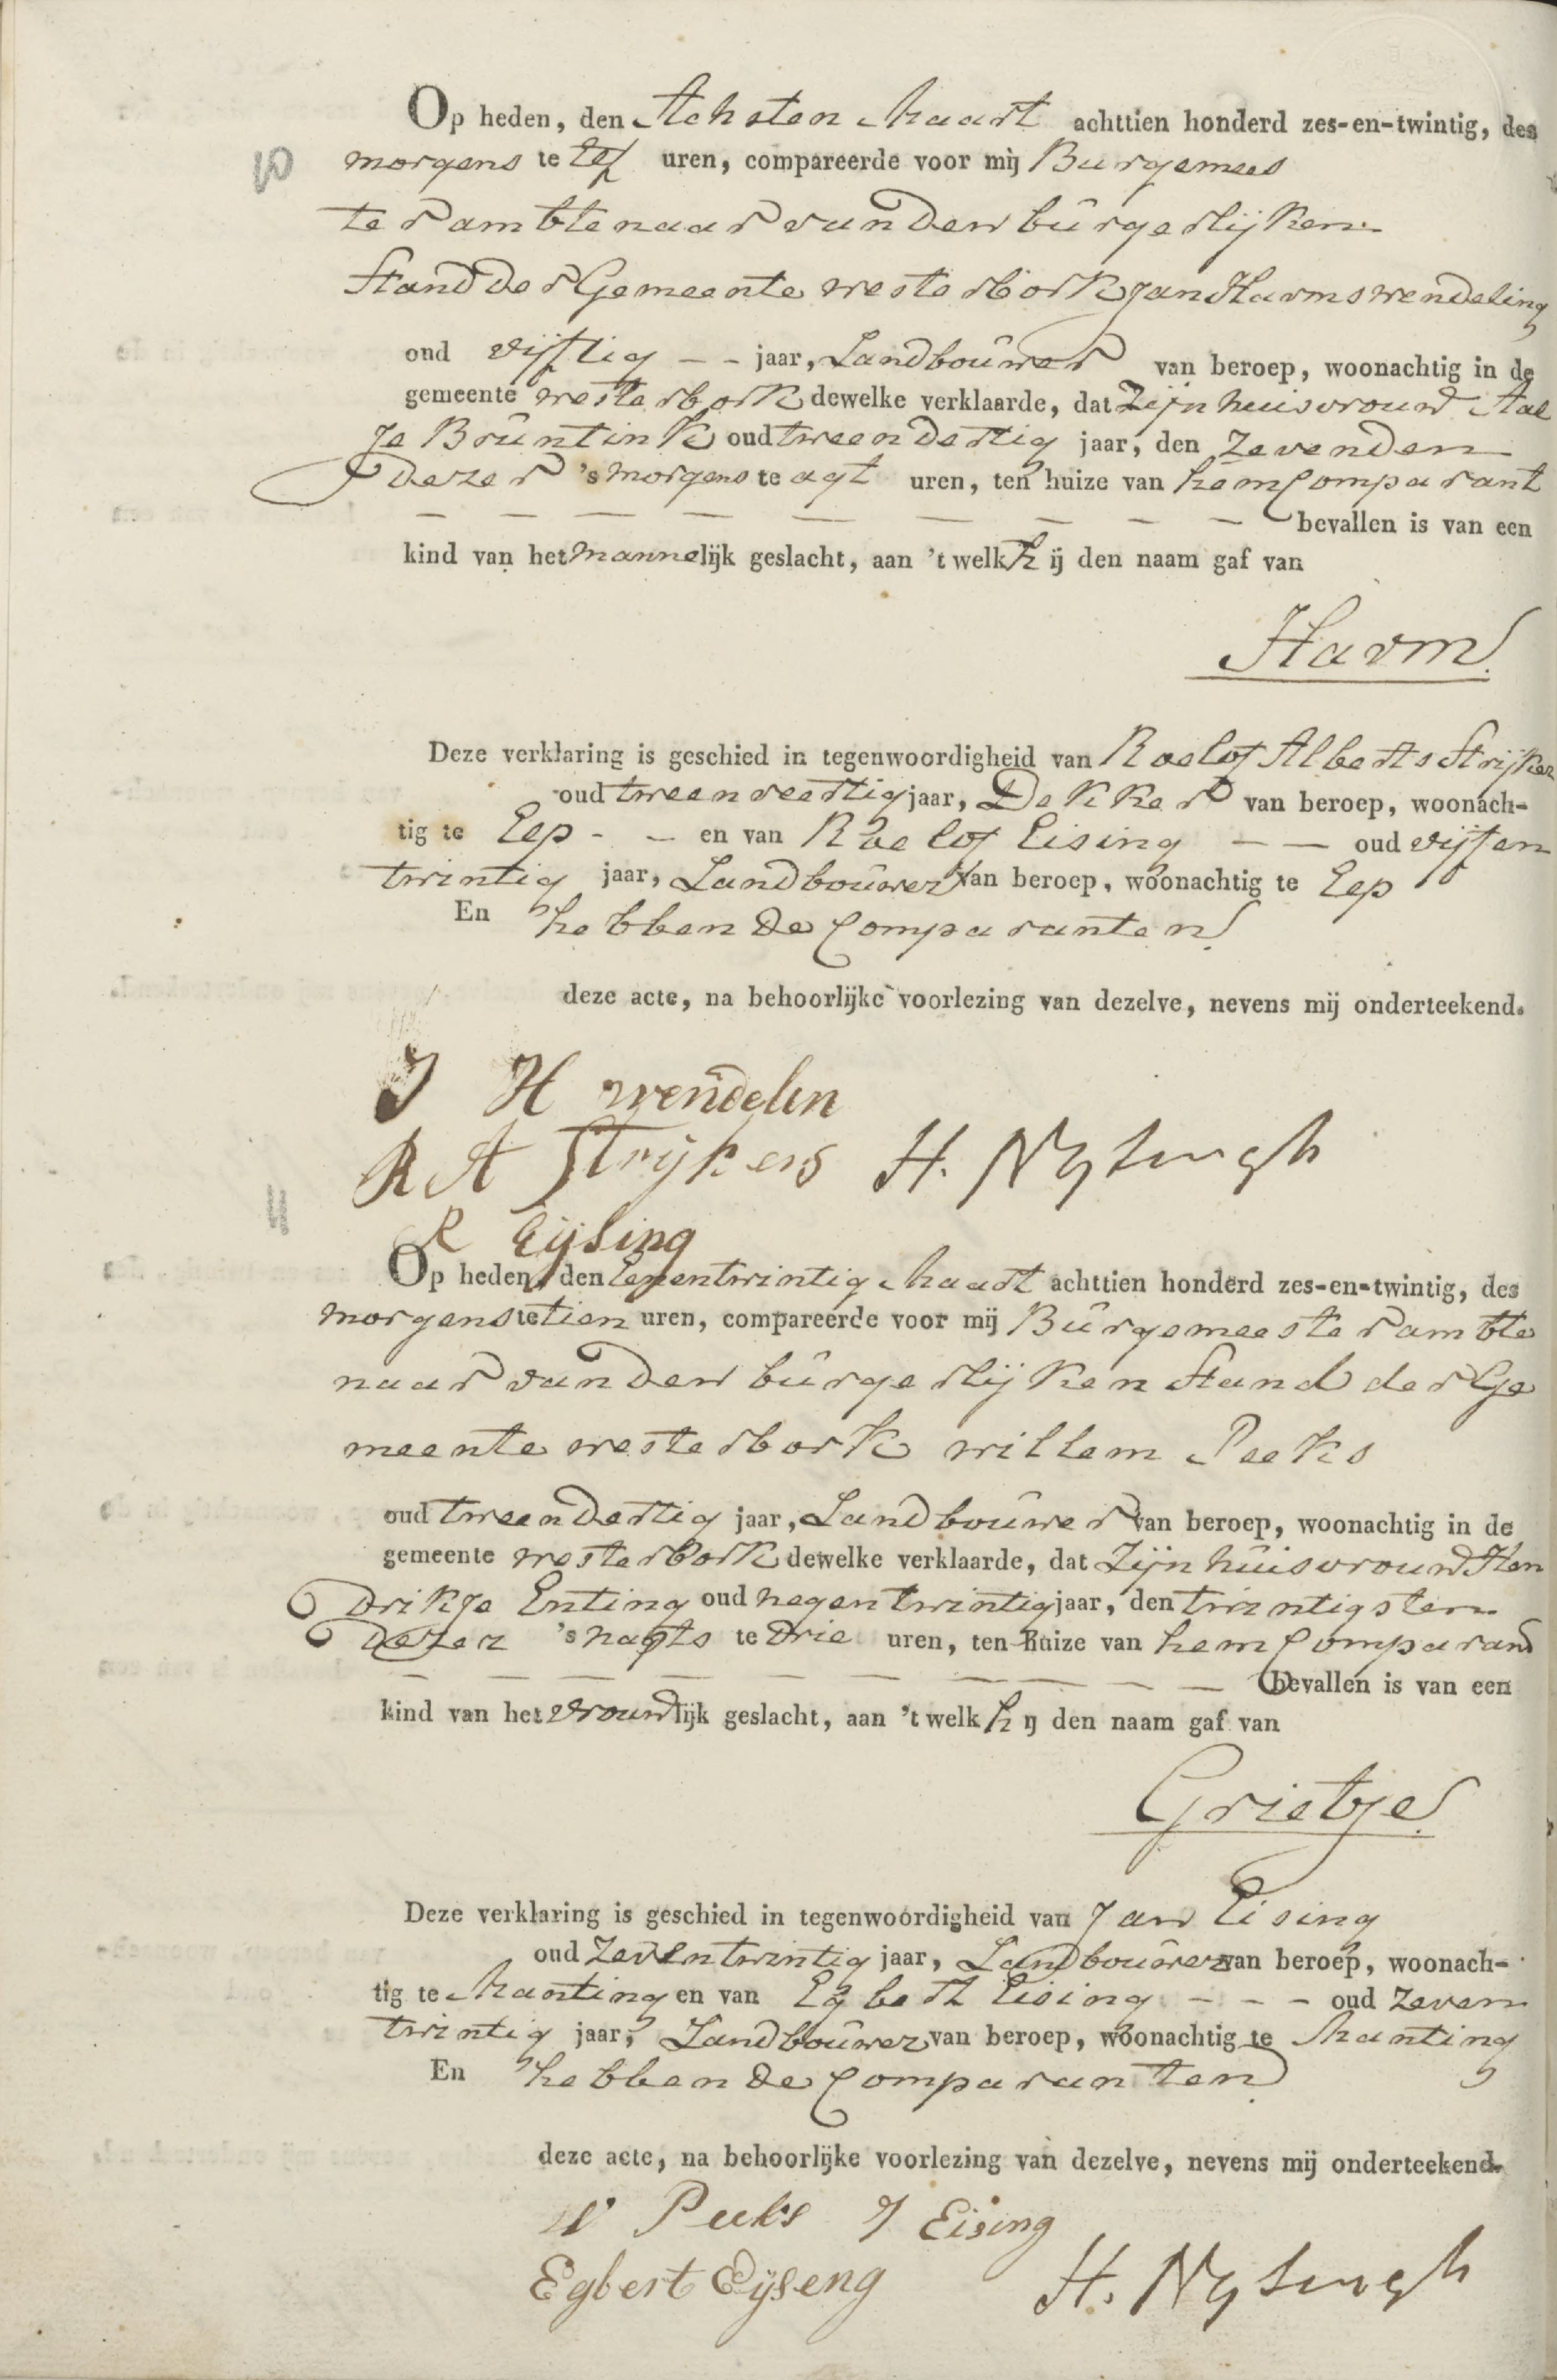 Op heden, den Achsten Maart achttien honderd zes-en-twintig, des
10
morgens te elf uren, compareerde voor mij Burgemees
ter ambtenaar van den burgerlijken
Stand der Gemeente westerbork Jan Harms wendeling
oud vijftig - - jaar, Landbouwer van beroep, woonachtig in de
gemeente westerbork dewelke verklaarde, dat Zijn huisvrouw Aal
Je Bruntink oud tweendertig jaar, den Zevenden
dezer 's morgens te agt uren, ten huize van hem Comparant
— — — — — — — — — bevallen is van een
kind van het mannelijk geslacht, aan 't welk hij den naam gaf van
Harm.
Deze verklaring is geschied in tegenwoordigheid van Roelof Alberts Strijker
oud tweenveertig jaar, Dekker van beroep, woonach-
tig te Eep - - en van Roelof Eising — — oud vijfen
twintig jaar, Landbouwer van beroep, woonachtig te Eep
En hebben de Comparanten
deze acte, na behoorlijke voorlezing van dezelve, nevens mij onderteekend.
J H wendelin
R A Strijkers H. Nysingh
11
R Eijsing
Op heden, den Eenentwintig Maart achttien honderd zes-en-twintig, des
morgens te tien uren, compareerde voor mij Burgemeester ambte
naar van den burgerlijken Stand der Ge
meente westerbork willem Peeks
oud tweendertig jaar, Landbouwer van beroep, woonachtig in de
gemeente westerbork dewelke verklaarde, dat Zijn huisvrouw Hen
drikje Enting oud negentwintig jaar, den twintigsten
dezer 's nagts te drie uren, ten huize van hem Comparand
— — — — — — — — — bevallen is van een
kind van het vrouwlijk geslacht, aan 't welk hij den naam gaf van
Grietje.
Deze verklaring is geschied in tegenwoordigheid van Jan Eising
oud Zeventwintig jaar, Landbouwer van beroep, woonach-
tig te Manting en van Egbert Eising - - - oud Zeven
twintig jaar, Landbouwer van beroep, woonachtig te Manting
En hebben de Comparanten
deze acte, na behoorlijke voorlezing van dezelve, nevens mij onderteekend.
W Peeks J Eising
Egbert Eijseng H. Nysingh